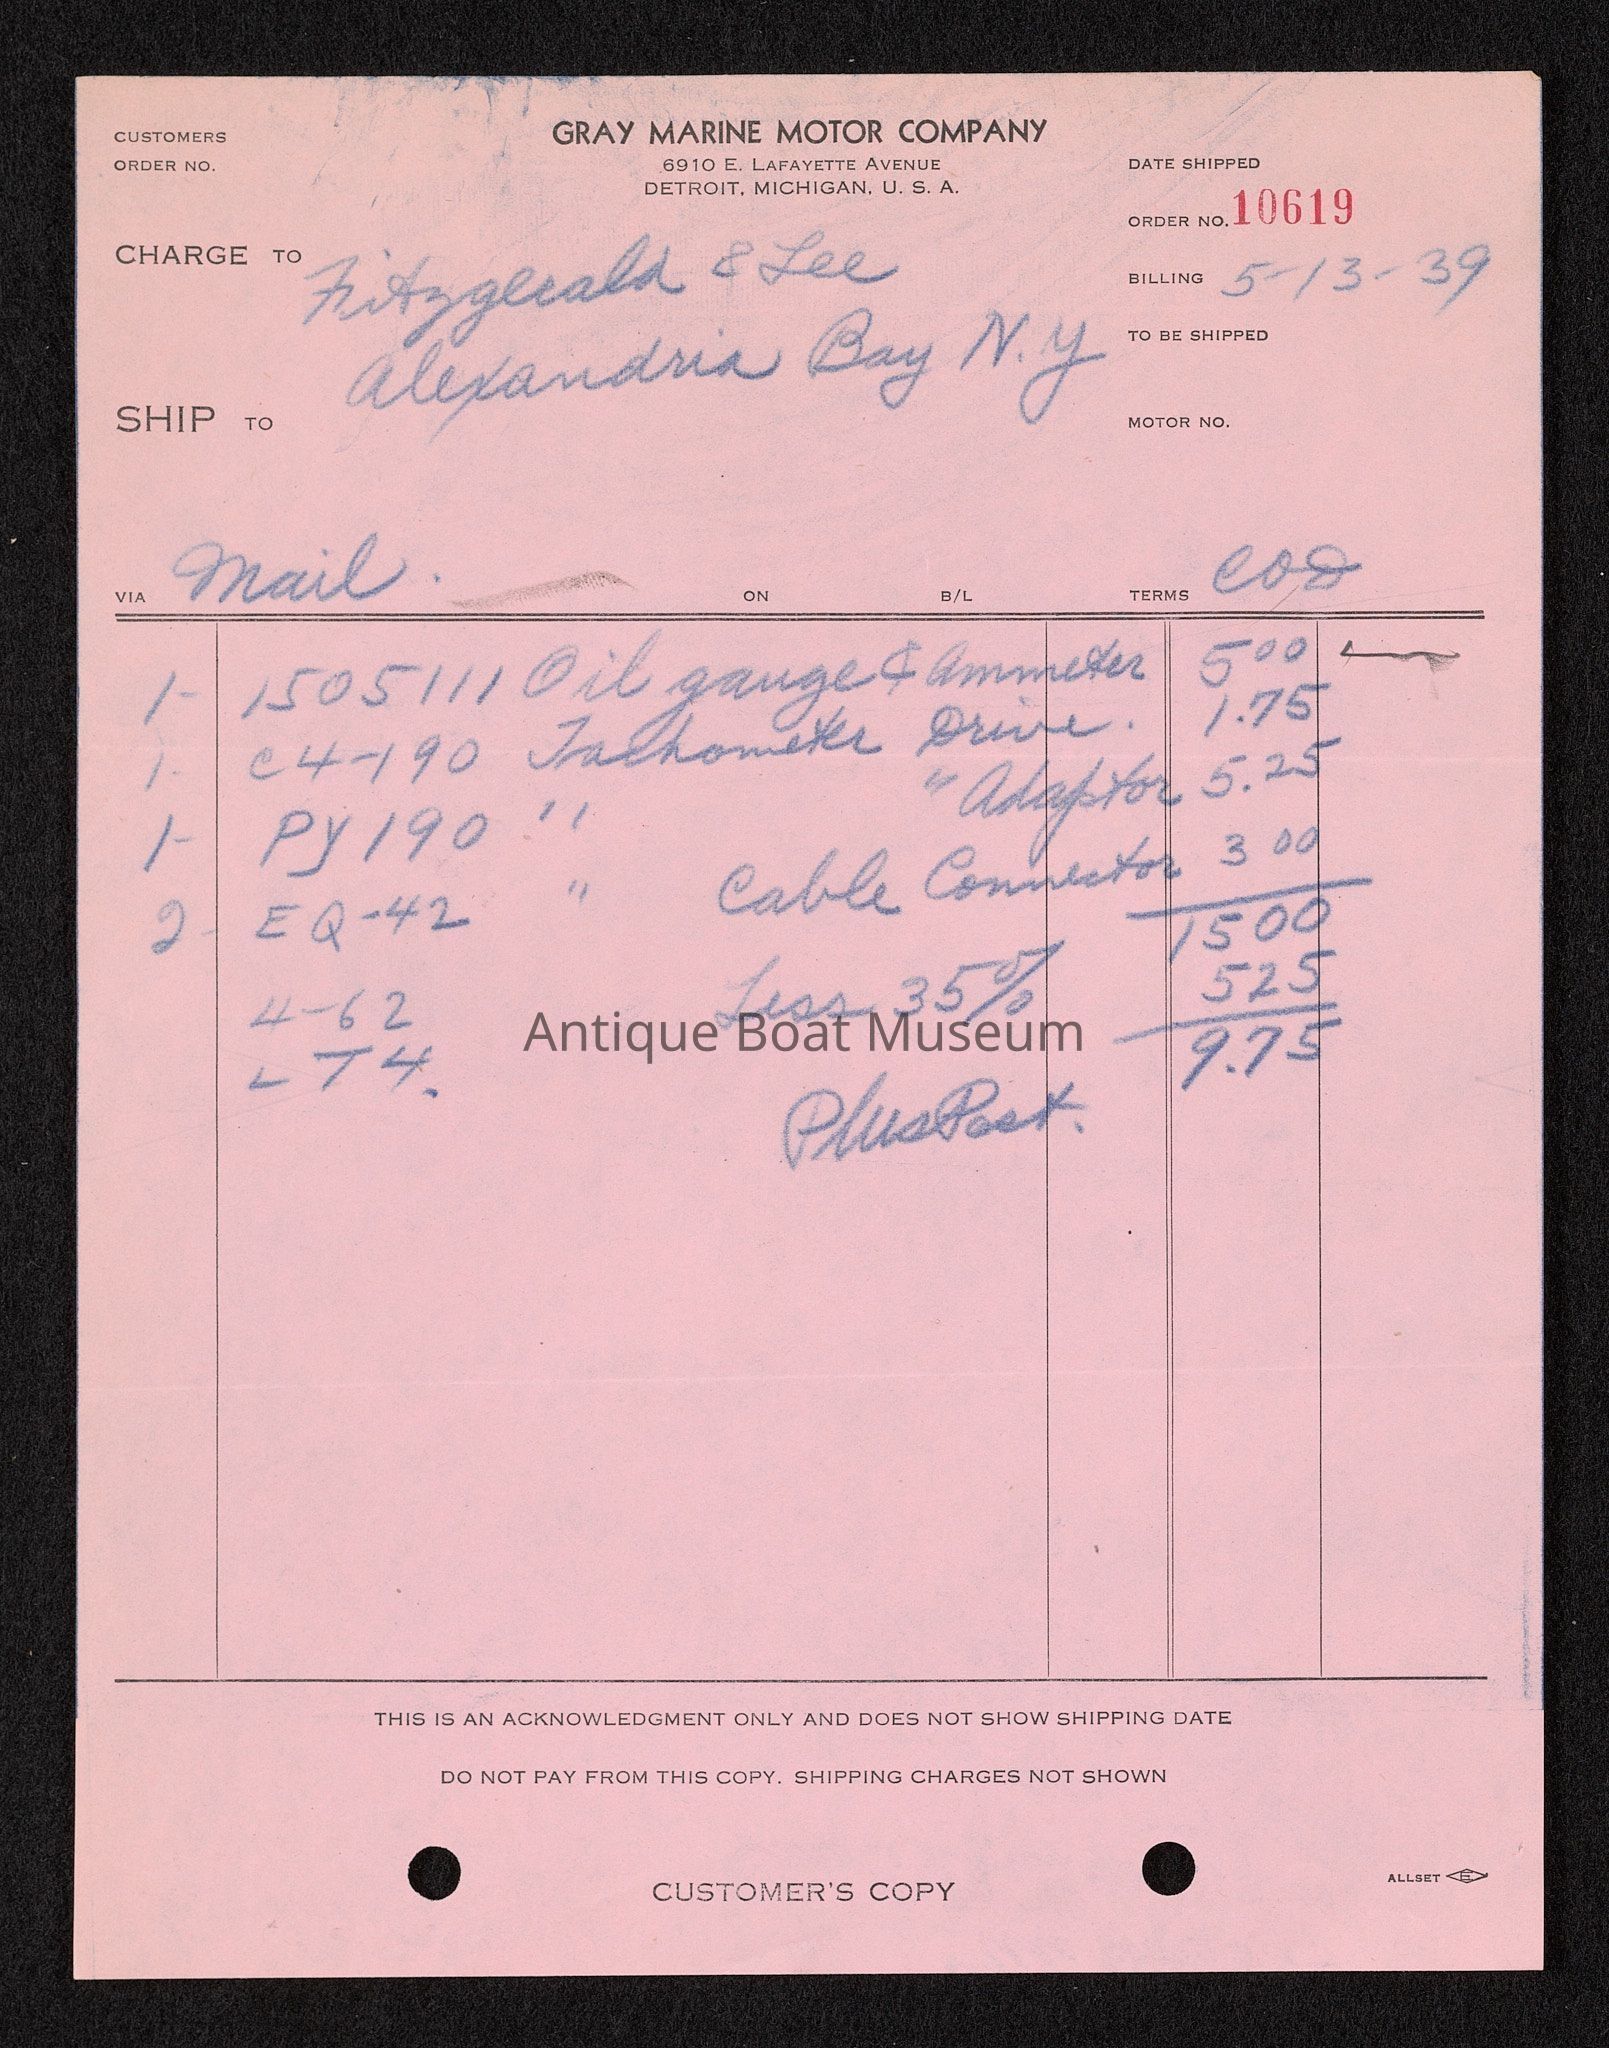 CUSTOMERS
ORDER NO.
GRAY MARINE MOTOR COMPANY
6910 E. LAFAYETTE AVENUE
DETROIT, MICHIGAN, U. S. A.
DATE SHIPPED
ORDER NO. 10619
CHARGE TO Fitzgerald & Lee
BILLING 5-13-39
Alexandria Bay N.Y
TO BE SHIPPED
SHIP TO
MOTOR NO.
VIA Mail. ON B/L TERMS COD
1- 1505111 Oil gauge & Ammeter 5 00
1- C4-190 Tachometer Drive. 1.75
1- PY190 " " Adaptor 5.25
2- EQ-42 " Cable Connector 3 00
15 00
Less 35% 5 25
4-62
9.75
LT4.
Plus Post.
Antique Boat Museum
THIS IS AN ACKNOWLEDGMENT ONLY AND DOES NOT SHOW SHIPPING DATE
DO NOT PAY FROM THIS COPY. SHIPPING CHARGES NOT SHOWN
CUSTOMER'S COPY
ALLSET E